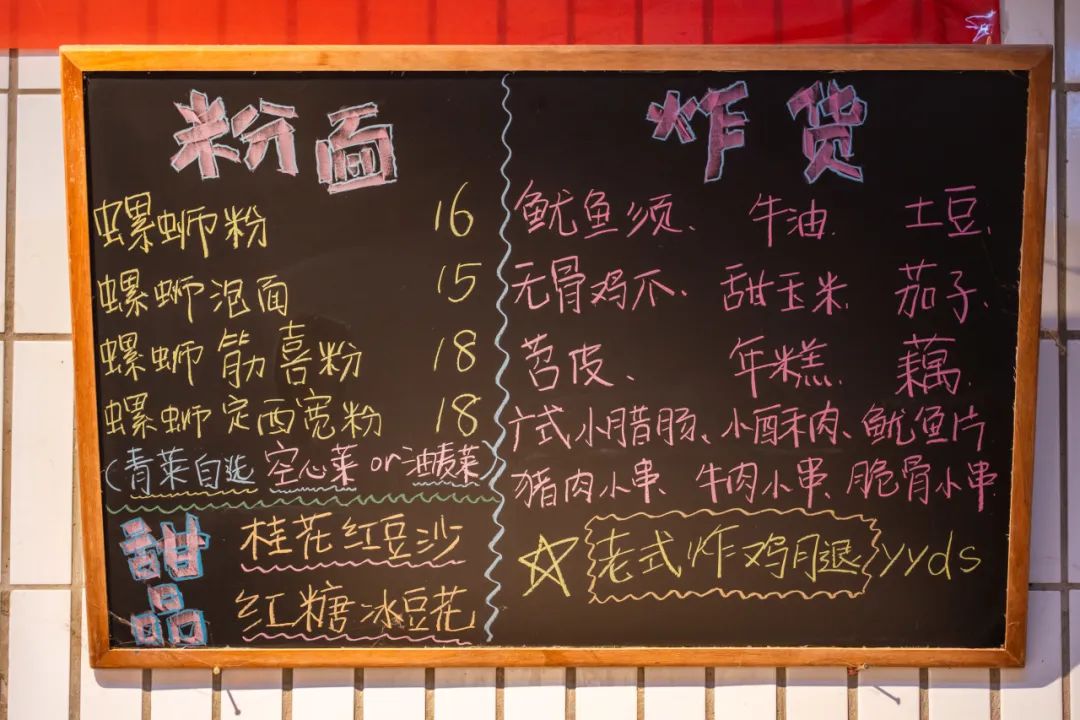 粉面
螺蛳粉 16
螺蛳泡面 15
螺蛳筋喜粉 18
螺蛳定西宽粉 18
(青菜自选 空心菜 or 油麦菜)
甜品
桂花红豆沙
红糖冰豆花
炸货
鱿鱼须、 牛油、 土豆、
无骨鸡爪、 甜玉米、 茄子、
苕皮、 年糕、 藕、
广式小腊肠、小酥肉、鱿鱼片
猪肉小串、牛肉小串、脆骨小串
☆老式炸鸡腿yyds